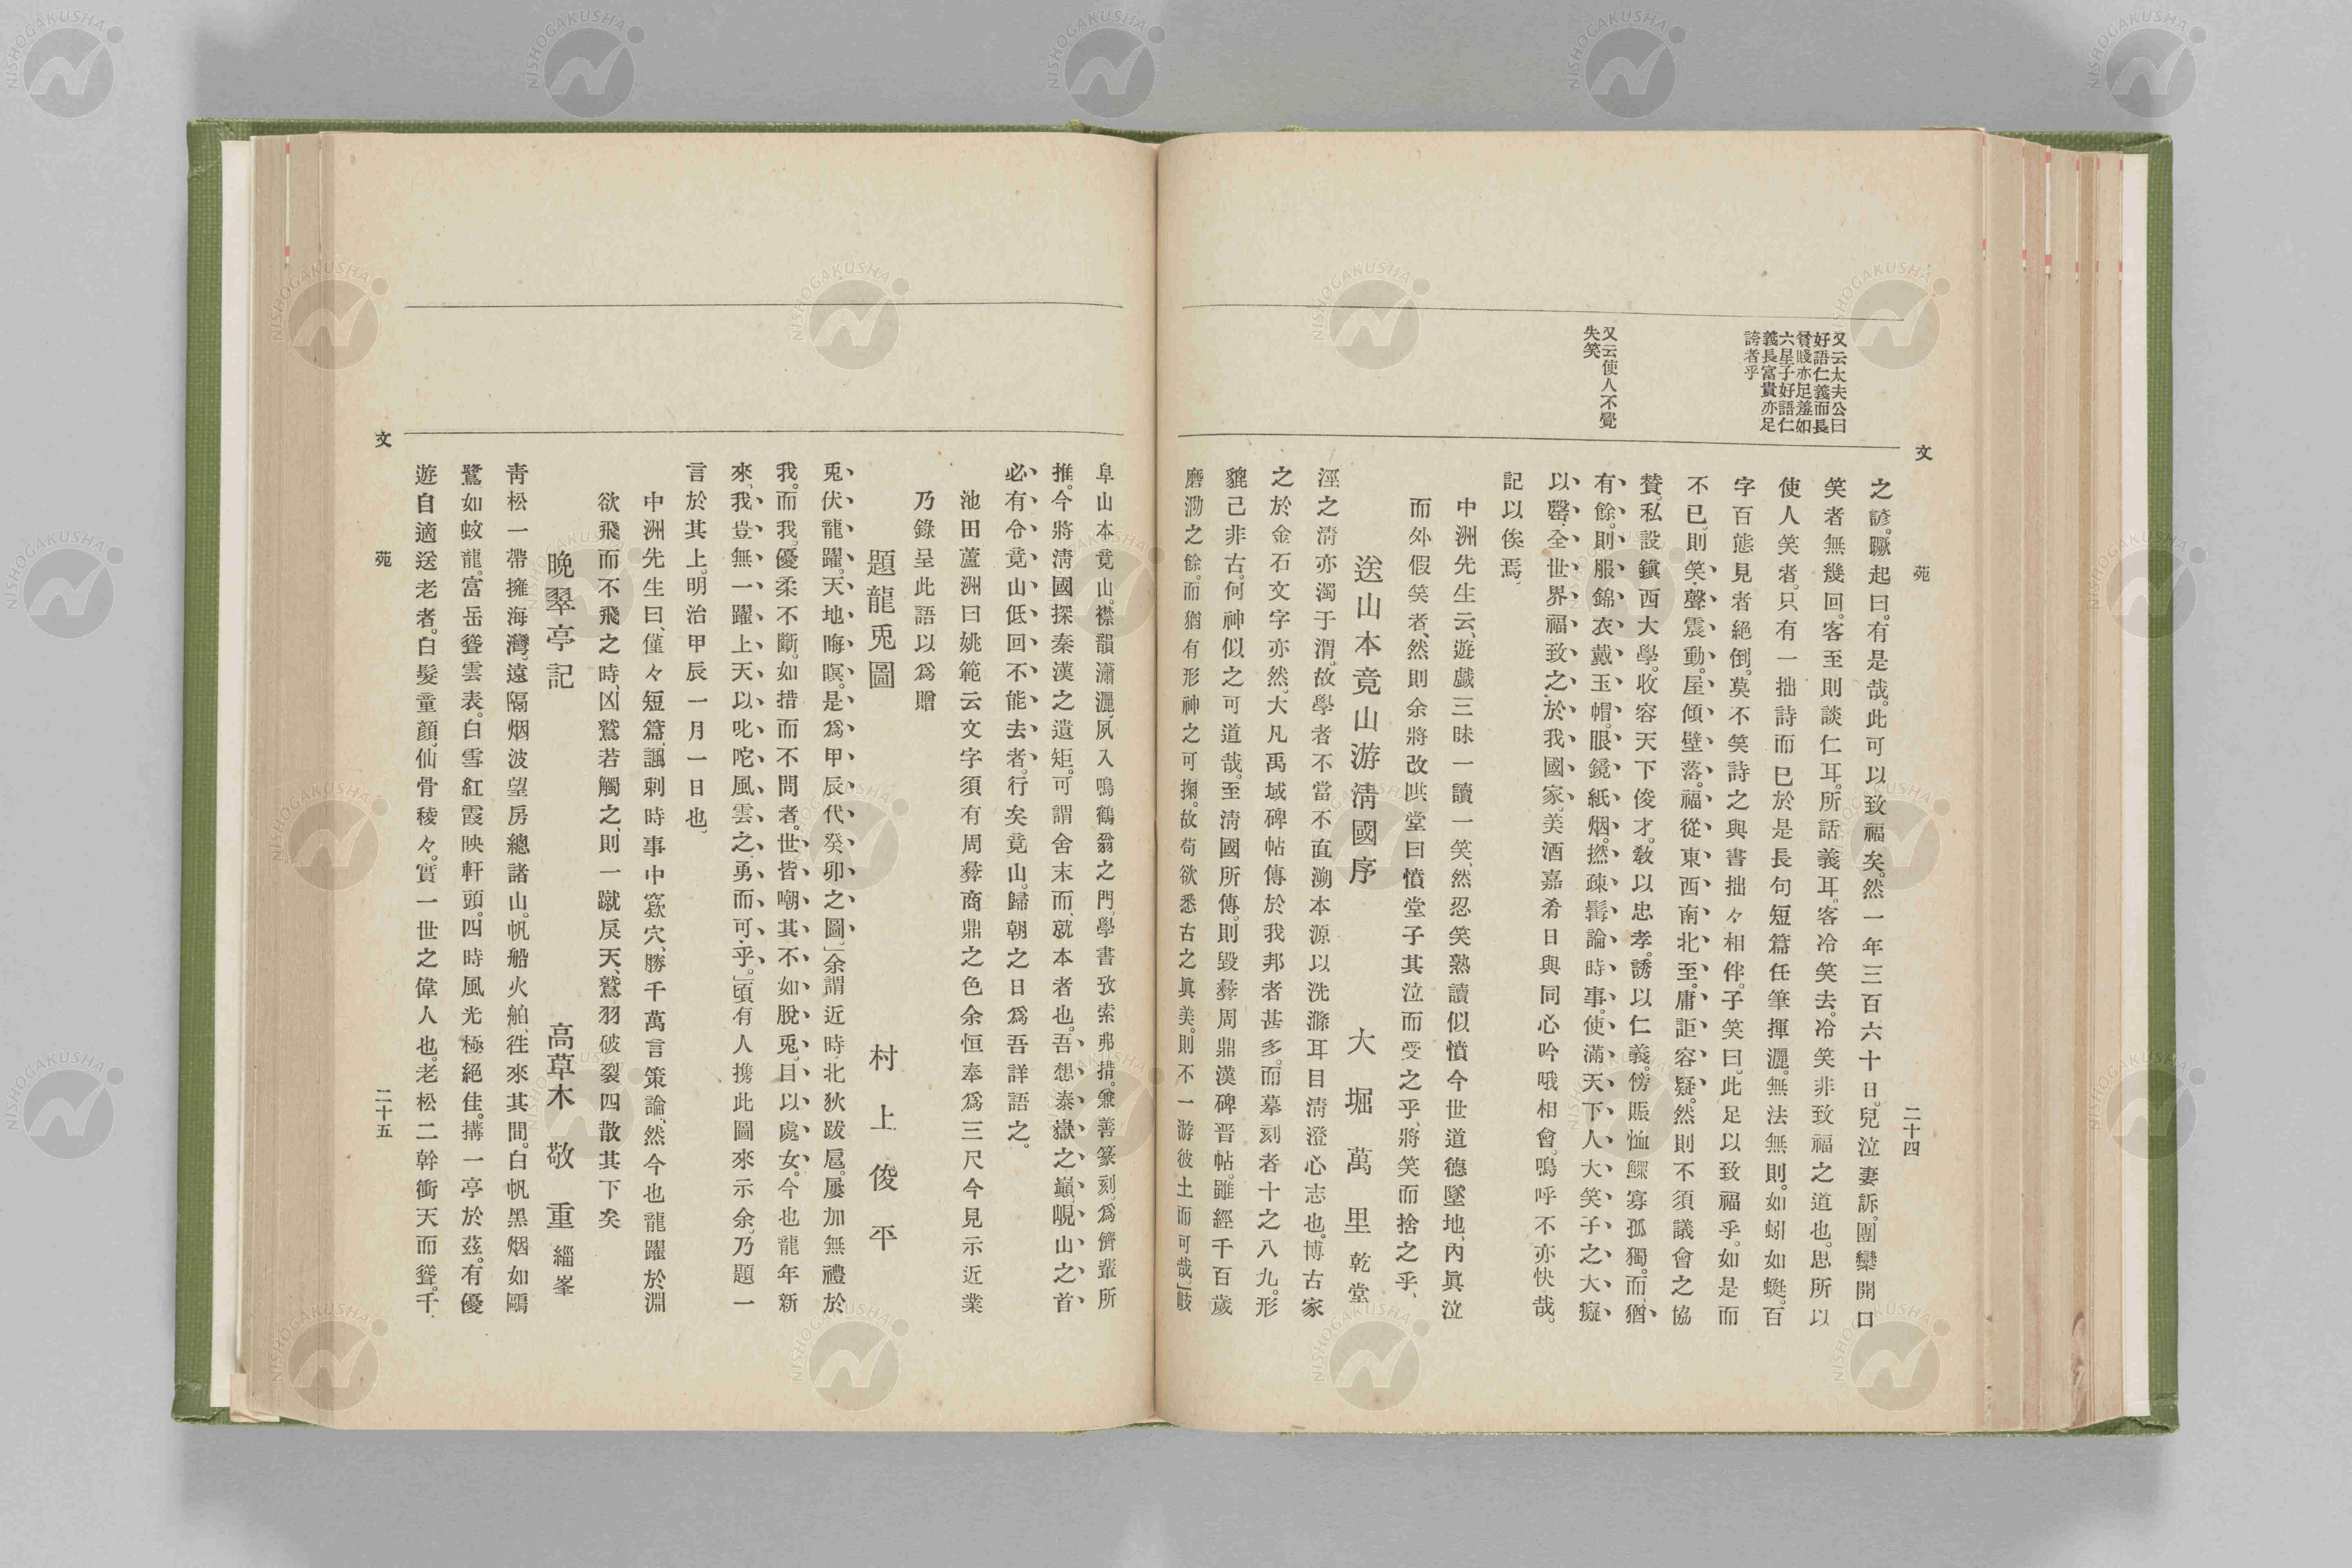 文苑
二十四
又云太夫公曰
好語仁義而長
貧賤亦足羞如
六星子好語仁
義長富貴亦足
誇者乎
又云使人不覺
失笑
之諺。蹶起曰。有是哉。此可以致福矣。然一年三百六十日。兒泣妻訴。團欒開口
笑者無幾回。客至則談仁耳。所話義耳。客冷笑去。冷笑非致福之道也。思所以
使人笑者。只有一拙詩而已於是長句短篇任筆揮灑。無法無則。如蚓如蜓。百
字百態見者絕倒。莫不笑詩之與書拙々相伴。子笑曰。此足以致福乎。如是而
不已、則笑聲震動。屋傾壁落。福從東西南北至。庸詎容疑。然則不須議會之協
贊。私設鎭西大學。收容天下俊才。敎以忠孝。誘以仁義。傍賑恤鰥寡孤獨。而猶
有餘。則服錦衣戴玉帽。眼鏡紙烟。撚疎髯論時事。使滿天下人大笑子之大癡
以罄全世界福致之於我國家。美酒嘉肴日與同心吟哦相會。鳴呼不亦快哉。
記以俟焉、
中洲先生云、遊戲三昧一讀一笑、然忍笑熟讀似憤今世道德墜地、內眞泣
而外假笑者、然則余將改哄堂曰憤堂子其泣而受之乎、將笑而捨之乎、
送山本竟山游淸國序
大堀萬里 乾堂
涇之淸亦濁于渭。故學者不當不直溯本源以洗滌耳目淸澄心志也。博古家
之於金石文字亦然、大凡禹域碑帖傳於我邦者甚多。而摹刻者十之八九。形
貌已非古。何神似之可道哉。至淸國所傳。則毀彝周鼎漢碑晋帖。雖經千百歲
磨泐之餘。而猶有形神之可掬。故苟欲悉古之眞美。則不一游彼土而可哉。」岐
阜山本竟山。襟韻瀟灑、夙入鳴鶴翁之門、學書攷索弗措。兼善篆刻、爲儕輩所
推。今將淸國探秦漢之遺矩。可謂舍末而就本者也。吾想泰嶽之巓、峴山之首
必有令竟山低回不能去者。行矣竟山。歸朝之日爲吾詳語之。
池田蘆洲曰姚範云文字須有周彝商鼎之色余恒奉爲三尺今見示近業
乃錄呈此語以爲贈
題龍兎圖
村上俊平
兎伏龍躍。天地晦暝。是爲甲辰代癸卯之圖。」余謂近時北狄跋扈。屢加無禮於
我。而我優柔不斷。如措而不問者。世皆嘲其不如脫兎。目以處女。今也龍年新
來、我豈無一躍上天以叱咤風雲之勇而可乎。」頃有人携此圖來示余、乃題一
言於其上。明治甲辰一月一日也、
中洲先生曰、僅々短篇、諷刺時事中窾穴、勝千萬言策論、然今也龍躍於淵
欲飛而不飛之時、凶鷲若觸之、則一蹴戾天、鷲羽破裂四散其下矣
晩翠亭記
高草木敬重 緇峯
靑松一帶擁海灣。遠隔烟波望房總諸山。帆船火舶、徃來其間。白帆黑烟如鷗
鷺如蛟龍。富岳聳雲表。白雪紅霞映軒頭。四時風光極絕佳。搆一亭於茲。有優
遊自適送老者。白髮童顏、仙骨稜々。實一世之偉人也。老松二幹衝天而聳。千
文苑
二十五